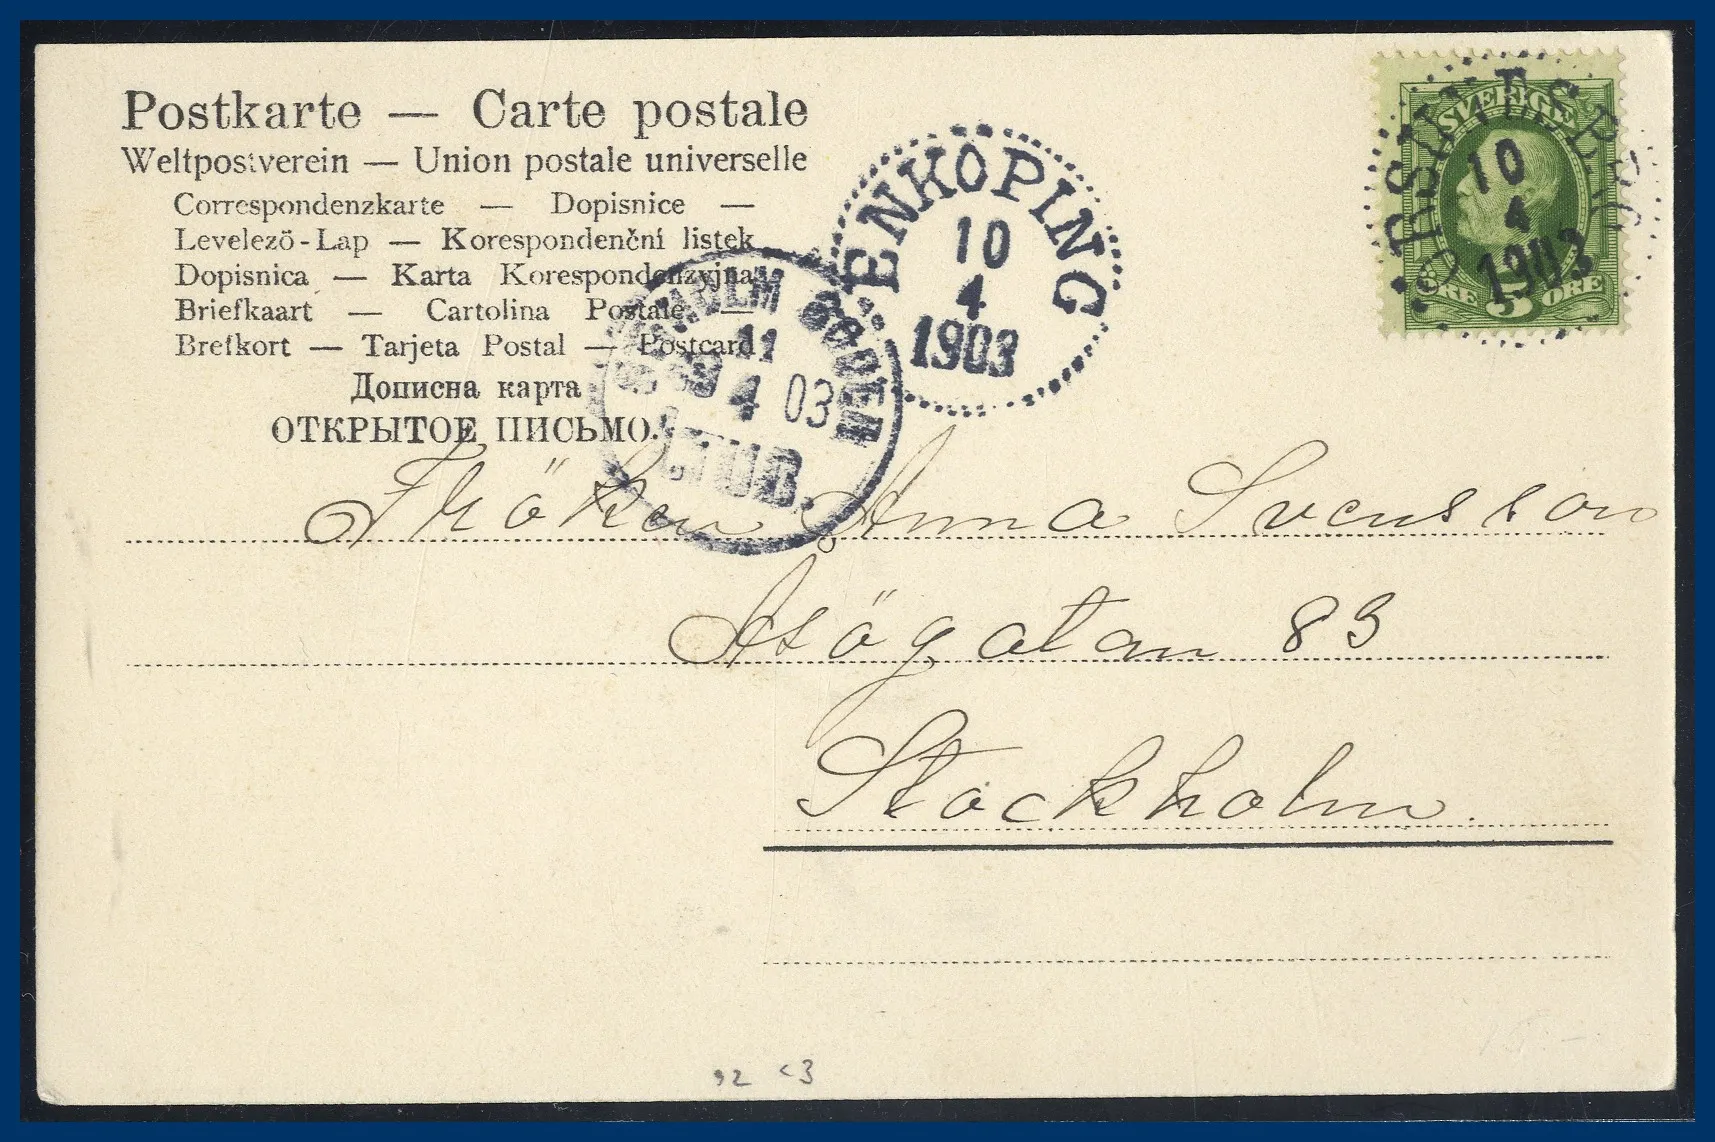 Postkarte — Carte postale
Weltpostverein — Union postale universelle
Correspondenzkarte — Dopisnice —
Levelező-Lap — Korespondenční listek
Dopisnica — Karta Korespondenzyjna
Briefkaart — Cartolina Postale —
Brefkort — Tarjeta Postal — Postcard
Дописна карта
ОТКРЫТОЕ ПИСЬМО.
ENKÖPING
10
4
1903
11
4 03
TUR.
SVERIGE
10
4
1903
5
ÖRE ÖRE
Fröken Anna Svensson
Åsögatan 83
Stockholm.